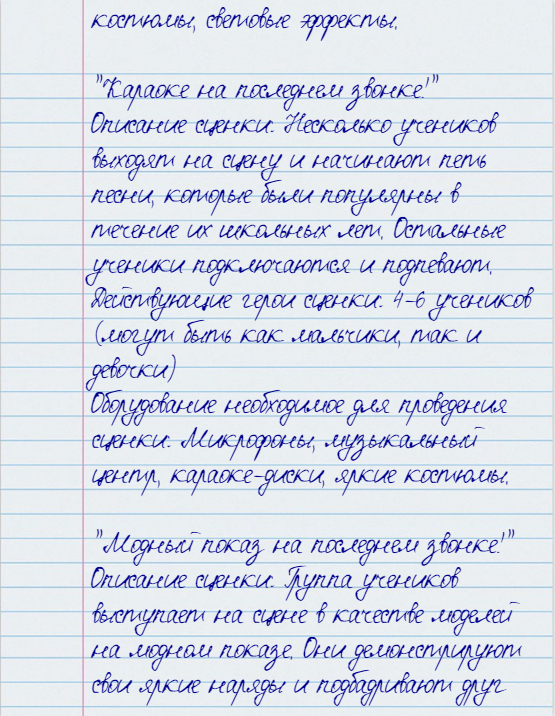 костюмы, световые эффекты.
"Караоке на последнем звонке!"
Описание сценки: Несколько учеников
выходят на сцену и начинают петь
песни, которые были популярны в
течение их школьных лет. Остальные
ученики подключаются и подпевают.
Действующие герои сценки: 4-6 учеников
(могут быть как мальчики, так и
девочки)
Оборудование необходимое для проведения
сценки: Микрофоны, музыкальный
центр, караоке-диски, яркие костюмы.
"Модный показ на последнем звонке!"
Описание сценки: Группа учеников
выступает на сцене в качестве моделей
на модном показе. Они демонстрируют
свои яркие наряды и подбадривают друг